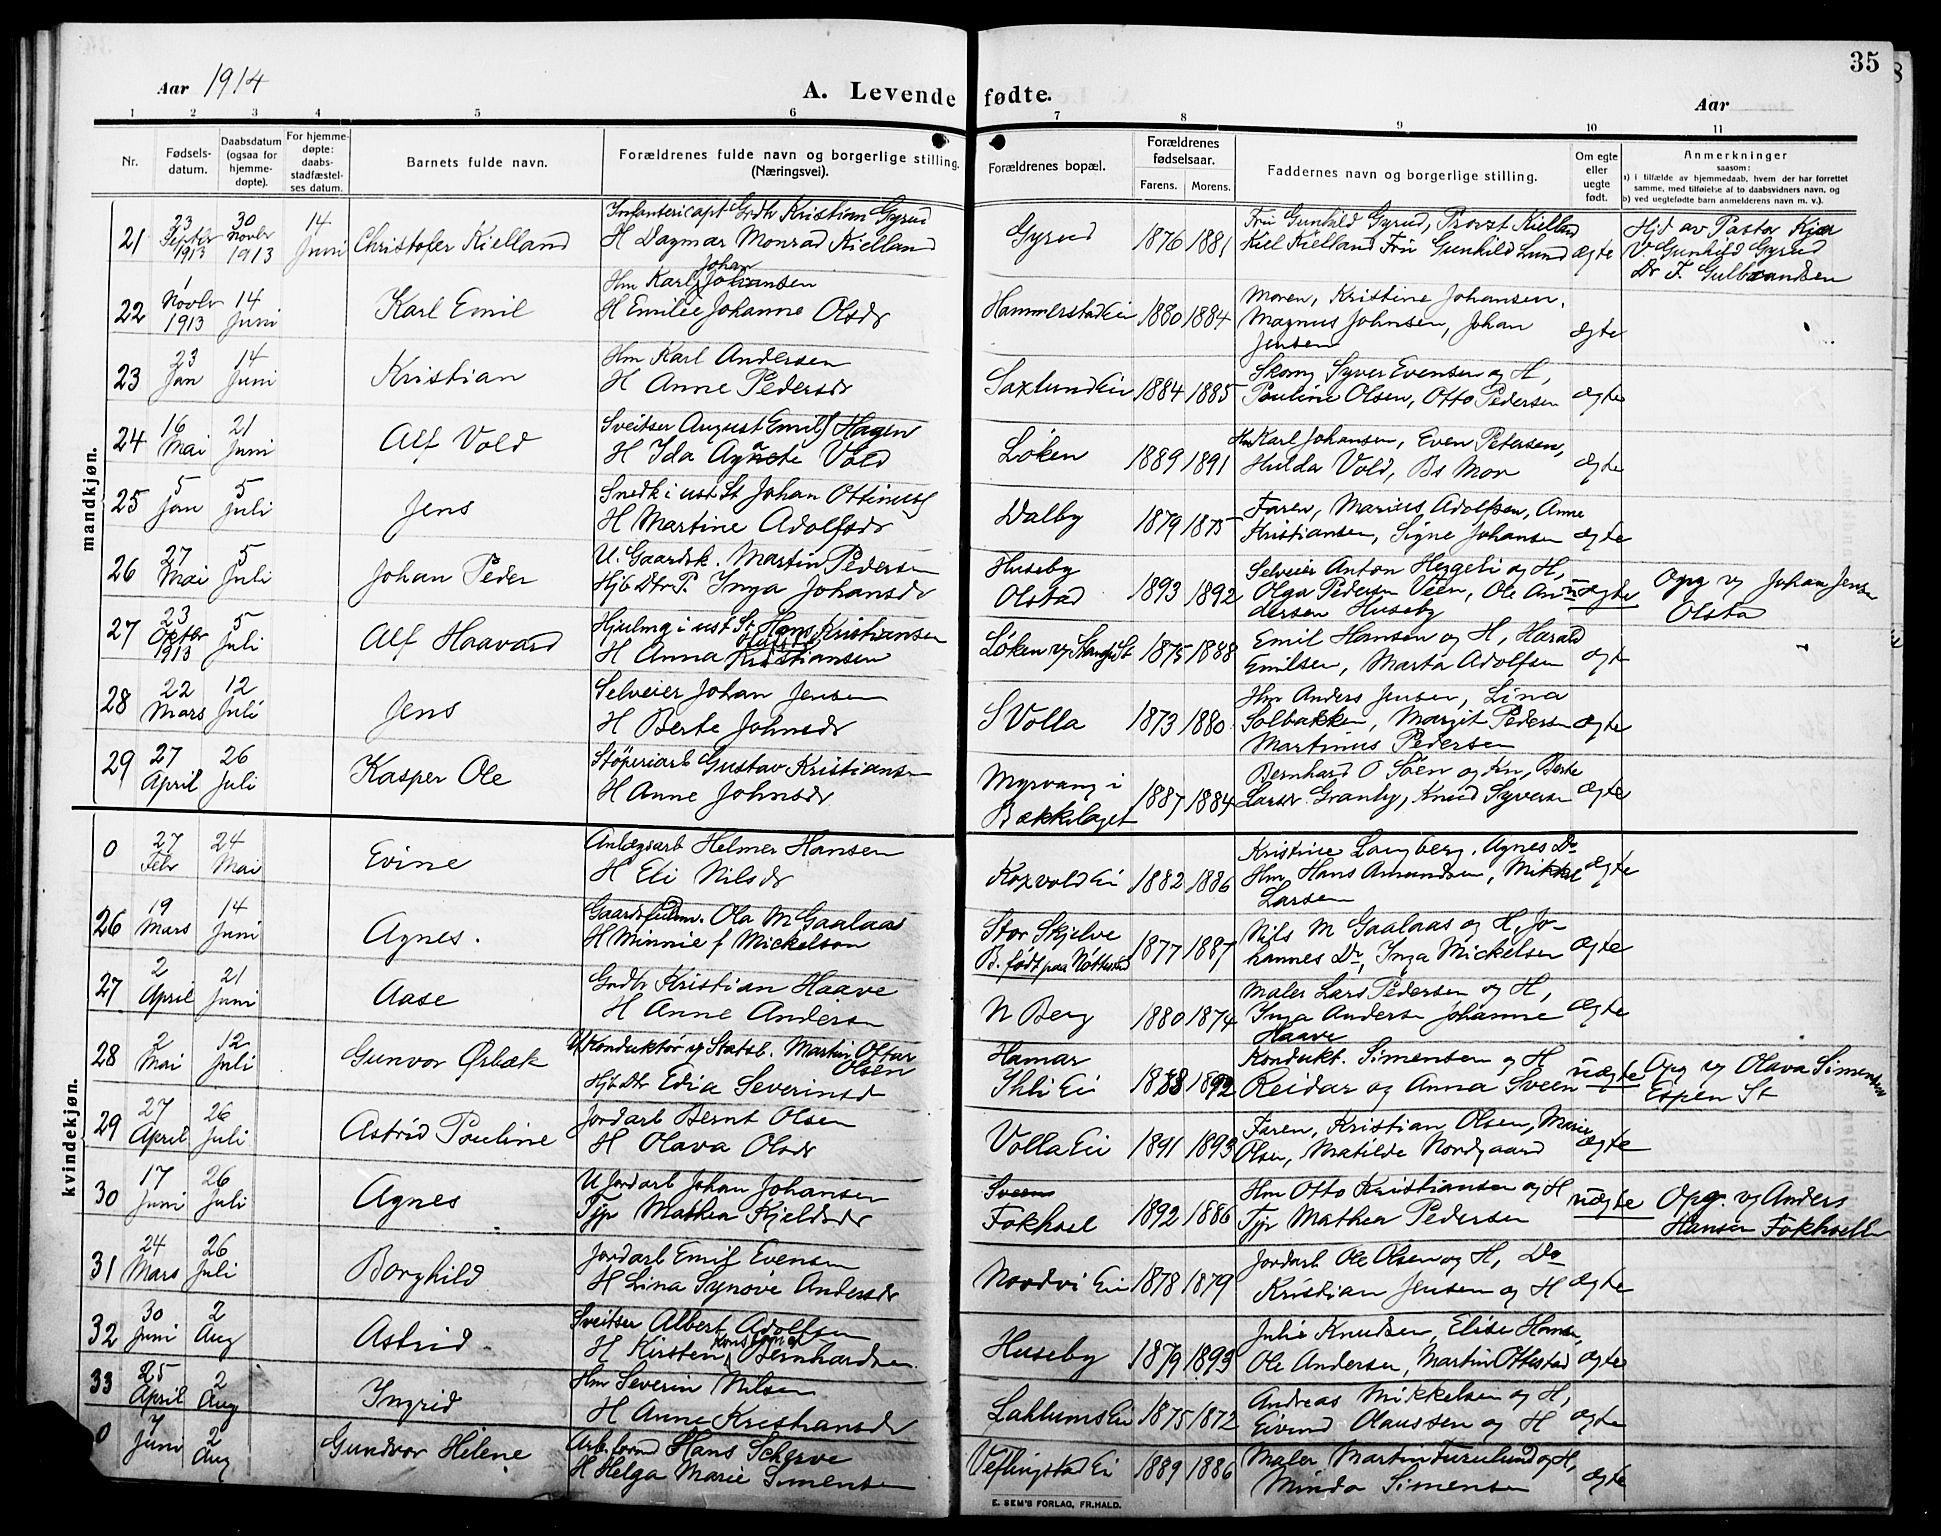 35
Aar 1914
A. Levende fødte.
Aar
1 2 3 4 5 6 7 8 9 10 11
Nr.
Fødsels-
datum.
Daabsdatum
(ogsaa for
hjemme-
døpte).
For hjemme-
døpte:
daabs-
stadfæstel-
ses datum.
Barnets fulde navn.
Forældrenes fulde navn og borgerlige stilling.
(Næringsvei).
Forældrenes bopæl.
Forældrenes
fødselsaar.
Farens. Morens.
Faddernes navn og borgerlige stilling.
Om egte
eller
uegte
født.
Anmerkninger
saasom:
a) i tilfælde av hjemmedaab, hvem der har forrettet
samme, med tilføielse af to daabsvidners navn, og
b) ved uegtefødte barn anmelderens navn m. v.).
mandkjøn.
21 23 Septbr 1913 30 Novbr 1913 14 Juni Christofer Kielland
Infantericapt Grdbr Kristian Gyrud
H Dagmar Monrad Kielland
Gyrud 1876 1881
Fru Gunhild Gyrud, Provst Kielland
Kiel Kielland Fru Gunhild Lund ægte
Hjd av Pastor Kjær
V. Gunhild Gyrud
Dr F. Gulbrandsen
22 1 Novbr 1913 14 Juni Karl Emil
Hm Karl Johan Johansen
H Emilie Johanne Olsdr
Hammerstad Ei 1880 1884
Moren, Kristine Johansen,
Magnus Johnsen, Johan
Jensen ægte
23 23 Jan 14 Juni Kristian
Hm Karl Andersen
H Anne Pedersdr
Saxlund Ei 1884 1885
Skomg Syver Evensen og H,
Pauline Olsen, Otto Pedersen ægte
24 16 Mai 21 Juni Alf Vold
Sveitser August Emil Hagen
H Ida Agnete Vold
Løken 1889 1891
Hm Karl Johansen, Even Petersen,
Hulda Vold, Bs Mor ægte
25 5 Jan 5 Juli Jens
Snedk i ust St Johan Ottinius
H Martine Adolfsdr
Dalby 1879 1875
Faren, Marius Adolfsen, Anne
Kristiansen, Signe Johansen ægte
26 27 Mai 5 Juli Johan Peder
U. Gaardsk. Martin Pedersen
Hjb Dtr P. Inga Johansdr
Huseby
Olstad 1893 1892
Selveier Anton Heggeli og H,
Olga Pedersen Veen, Ole An-
dersen Huseby uægte
Opg v Johan Jensen
Olsta
27 23 Oktbr 1913 5 Juli Alf Haavard
Hjulmg i ust St Hans Kristiansen
H Anna Kristiansen
Løken v Stange St 1875 1888
Emil Hansen og H, Harald
Emilsen, Marta Adolfsen ægte
28 22 Mars 12 Juli Jens
Selveier Johan Jensen
H Berte Johnsdr
S Volla 1873 1880
Hm Anders Jensen, Lina
Solbakken, Margit Pedersen
Martinus Pedersen ægte
29 27 April 26 Juli Kasper Ole
Støperiarb Gustav Kristiansen
H Anne Johnsdr
Myrvang i
Bækkelaget 1887 1884
Bernhard O Søen og Kn, Berte
Larsdr Granby, Knud Syversen ægte
kvindekjøn.
0 27 Febr 24 Mai Evine
Anlægsarb Helmer Hansen
H Eli Nilsdr
Koxvold Ei 1882 1886
Kristine Langberg, Agnes Do
Hm Hans Amundsen, Mikkel
Larsen ægte
26 19 Mars 14 Juni Agnes.
Gaardsfuldm. Ola M Gaalaas
H Minnie f Mickelson
Stor Skjelve
B. født paa Nøttestad 1877 1887
Nils M Gaalaas og H, Jo-
hannes Do, Inga Mickelsen ægte
27 2 April 21 Juni Aase
Grdbr Kristian Haave
H Anne Andersen
N Berg 1880 1874
Maler Lars Pedersen og H,
Inga Andersen Johanne
Haave ægte
28 2 Mai 12 Juli Gunvor Ørbæk
U Konduktør v Statsb. Martin Ottar
Olsen
Hjb Dtr Edia Severinsd
Hamar
Ihli Ei 1888 1892
Kondukt. Simensen og H
Reidar og Anna Sveen uægte
Opg v Olava Simensen
Espen St
29 27 April 26 Juli Astrid Pauline
Jordarb Bernt Olsen
H Olava Olsdr
Volla Ei 1891 1893
Faren, Kristian Olsen, Marie
Olsen, Matilde Nordgaard ægte
30 17 Juni 26 Juli Agnes
U Jordarb Johan Johansen
Tjp Mathea Kjeldsdr
Sveen
Fokhoel 1892 1886
Hm Otto Kristiansen og H
Tjp Mathea Pedersen uægte
Opg. v Anders
Hansen Fokhoelen
31 24 Mars 26 Juli Borghild
Jordarb Emil Evensen
H Lina Synøve Andersdr
Nordvi Ei 1878 1879
Jordarb Ole Olsen og H, Do
Kristian Jensen og H ægte
32 30 Juni 2 Aug Astrid
Sveitser Albert Adolfsen
H Kirsten Konstance Bernhardsen
Huseby 1879 1893
Julie Knudsen, Elise Hansen,
Ole Andersen, Martin Ottestad ægte
33 25 April 2 Aug Ingrid
Hm Severin Nilsen
H Anne Kristiansdr
Lahlums Ei 1875 1872
Andreas Mikkelsen og H,
Eivind Olaussen og H ægte
0 7 Juni 2 Aug Gundvor Helene
Arb.formd Hans Scherve
H Helga Marie Simensen
Veflingstad Ei 1889 1886
Maler Martin Furulund og H,
Minda Simensen ægte
E. SEM'S FORLAG, FR.HALD.